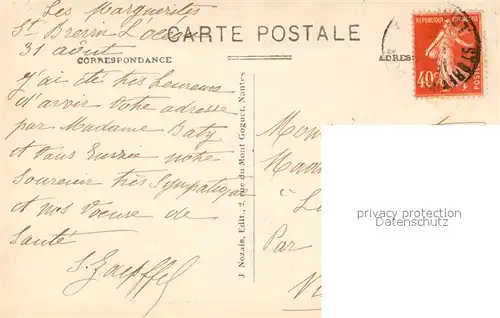 Les Marguerites
St Brevin L'Océan
31 août
CARTE POSTALE
CORRESPONDANCE
ADRES
REPUBLIQUE FRANCAISE
40c
POSTES
J'ai été très heureuse
d'avoir votre adresse
par Madame Baty
et vous envoie notre
souvenir très sympathique
et nos voeux de
santé
J. Nozais, Edit., 2, rue du Mont Goguet, Nantes
Mon
Mad
à
Par
privacy protection
Datenschutz